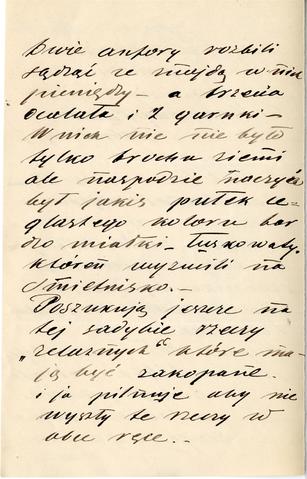 Dwie anfory rozbili
sądząc ze znajdą w nich
pieniądzy – a trzecia
ocalała i 2 garnki –
W nich nic nie było
tylko trochu ziemi
ale naspodzie naczyń
był jakiś pułek ce=
glastego koloru bar
dzo miałki – łuskowaty,
któren wyrzucili na
śmietnisko. –
Poszukują jeszcze na
tej sadybie rzeczy
„zelaznych" które ma=
ją być zakopane.
i ja pilnuje aby nie
wyszły te rzeczy w
obce ręce. –